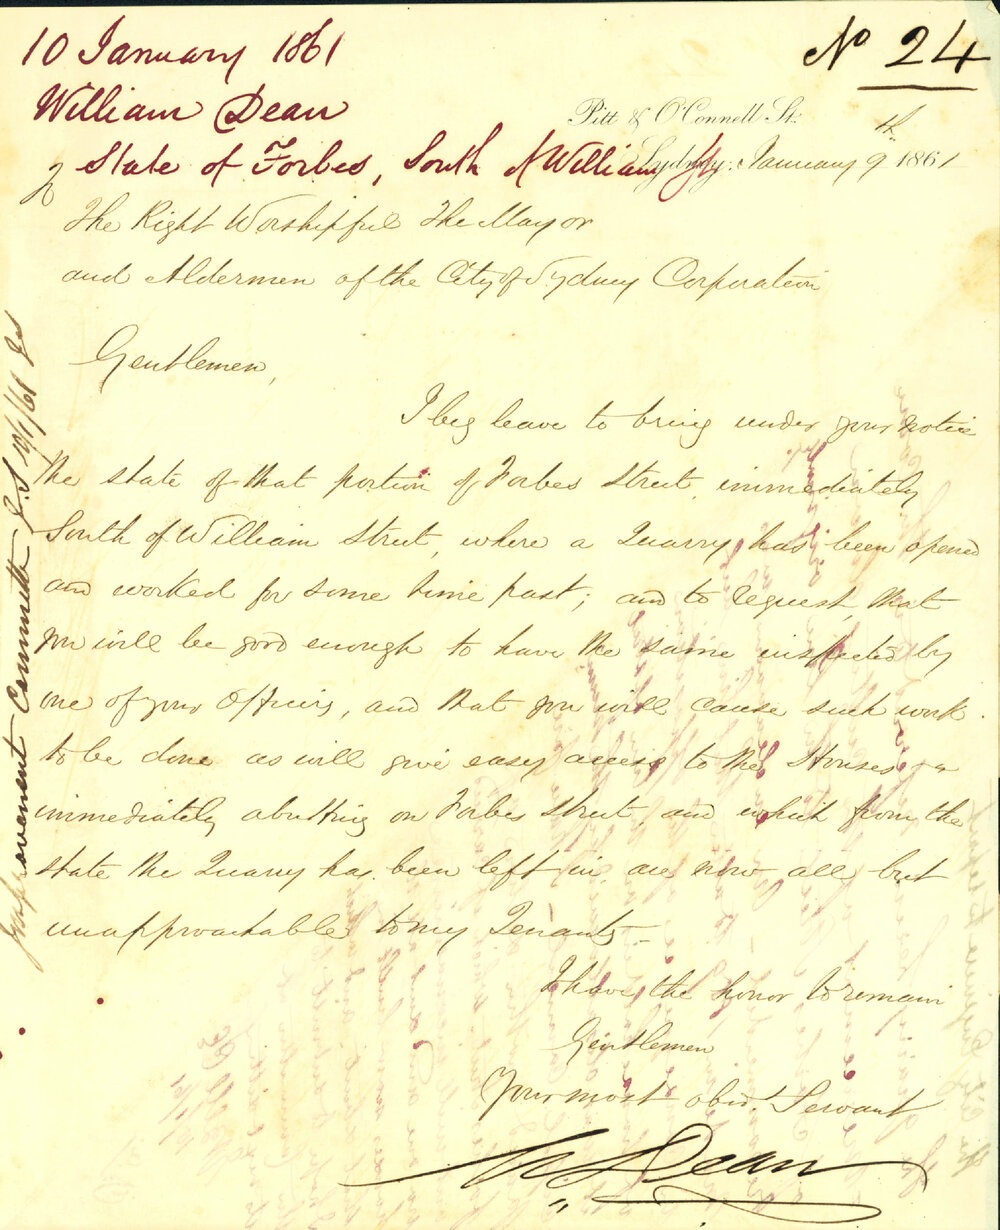 10 January 1861
No 24
William Dean
State of Forbes, South of William St
Pitt & O'Connell St.
Sydney. January 9th 1861
To
The Right Worshipful The Mayor
and Aldermen of the City of Sydney Corporation
Gentlemen,
I beg leave to bring under your notice
the state of that portion of Forbes Street, immediately
South of William Street, where a Quarry has been opened
and worked for some time past; and to request, that
you will be good enough to have the same inspected by
one of your Officers, and that you will cause such work
to be done as will give easy access to the Houses
immediately abutting on Forbes Street, and which from the
state the Quarry has been left in, are now all but
unapproachable to my Tenants.
I have the honor to remain
Gentlemen
Your most obed. Servant
Wm Dean
Improvement Committee 10/1/61